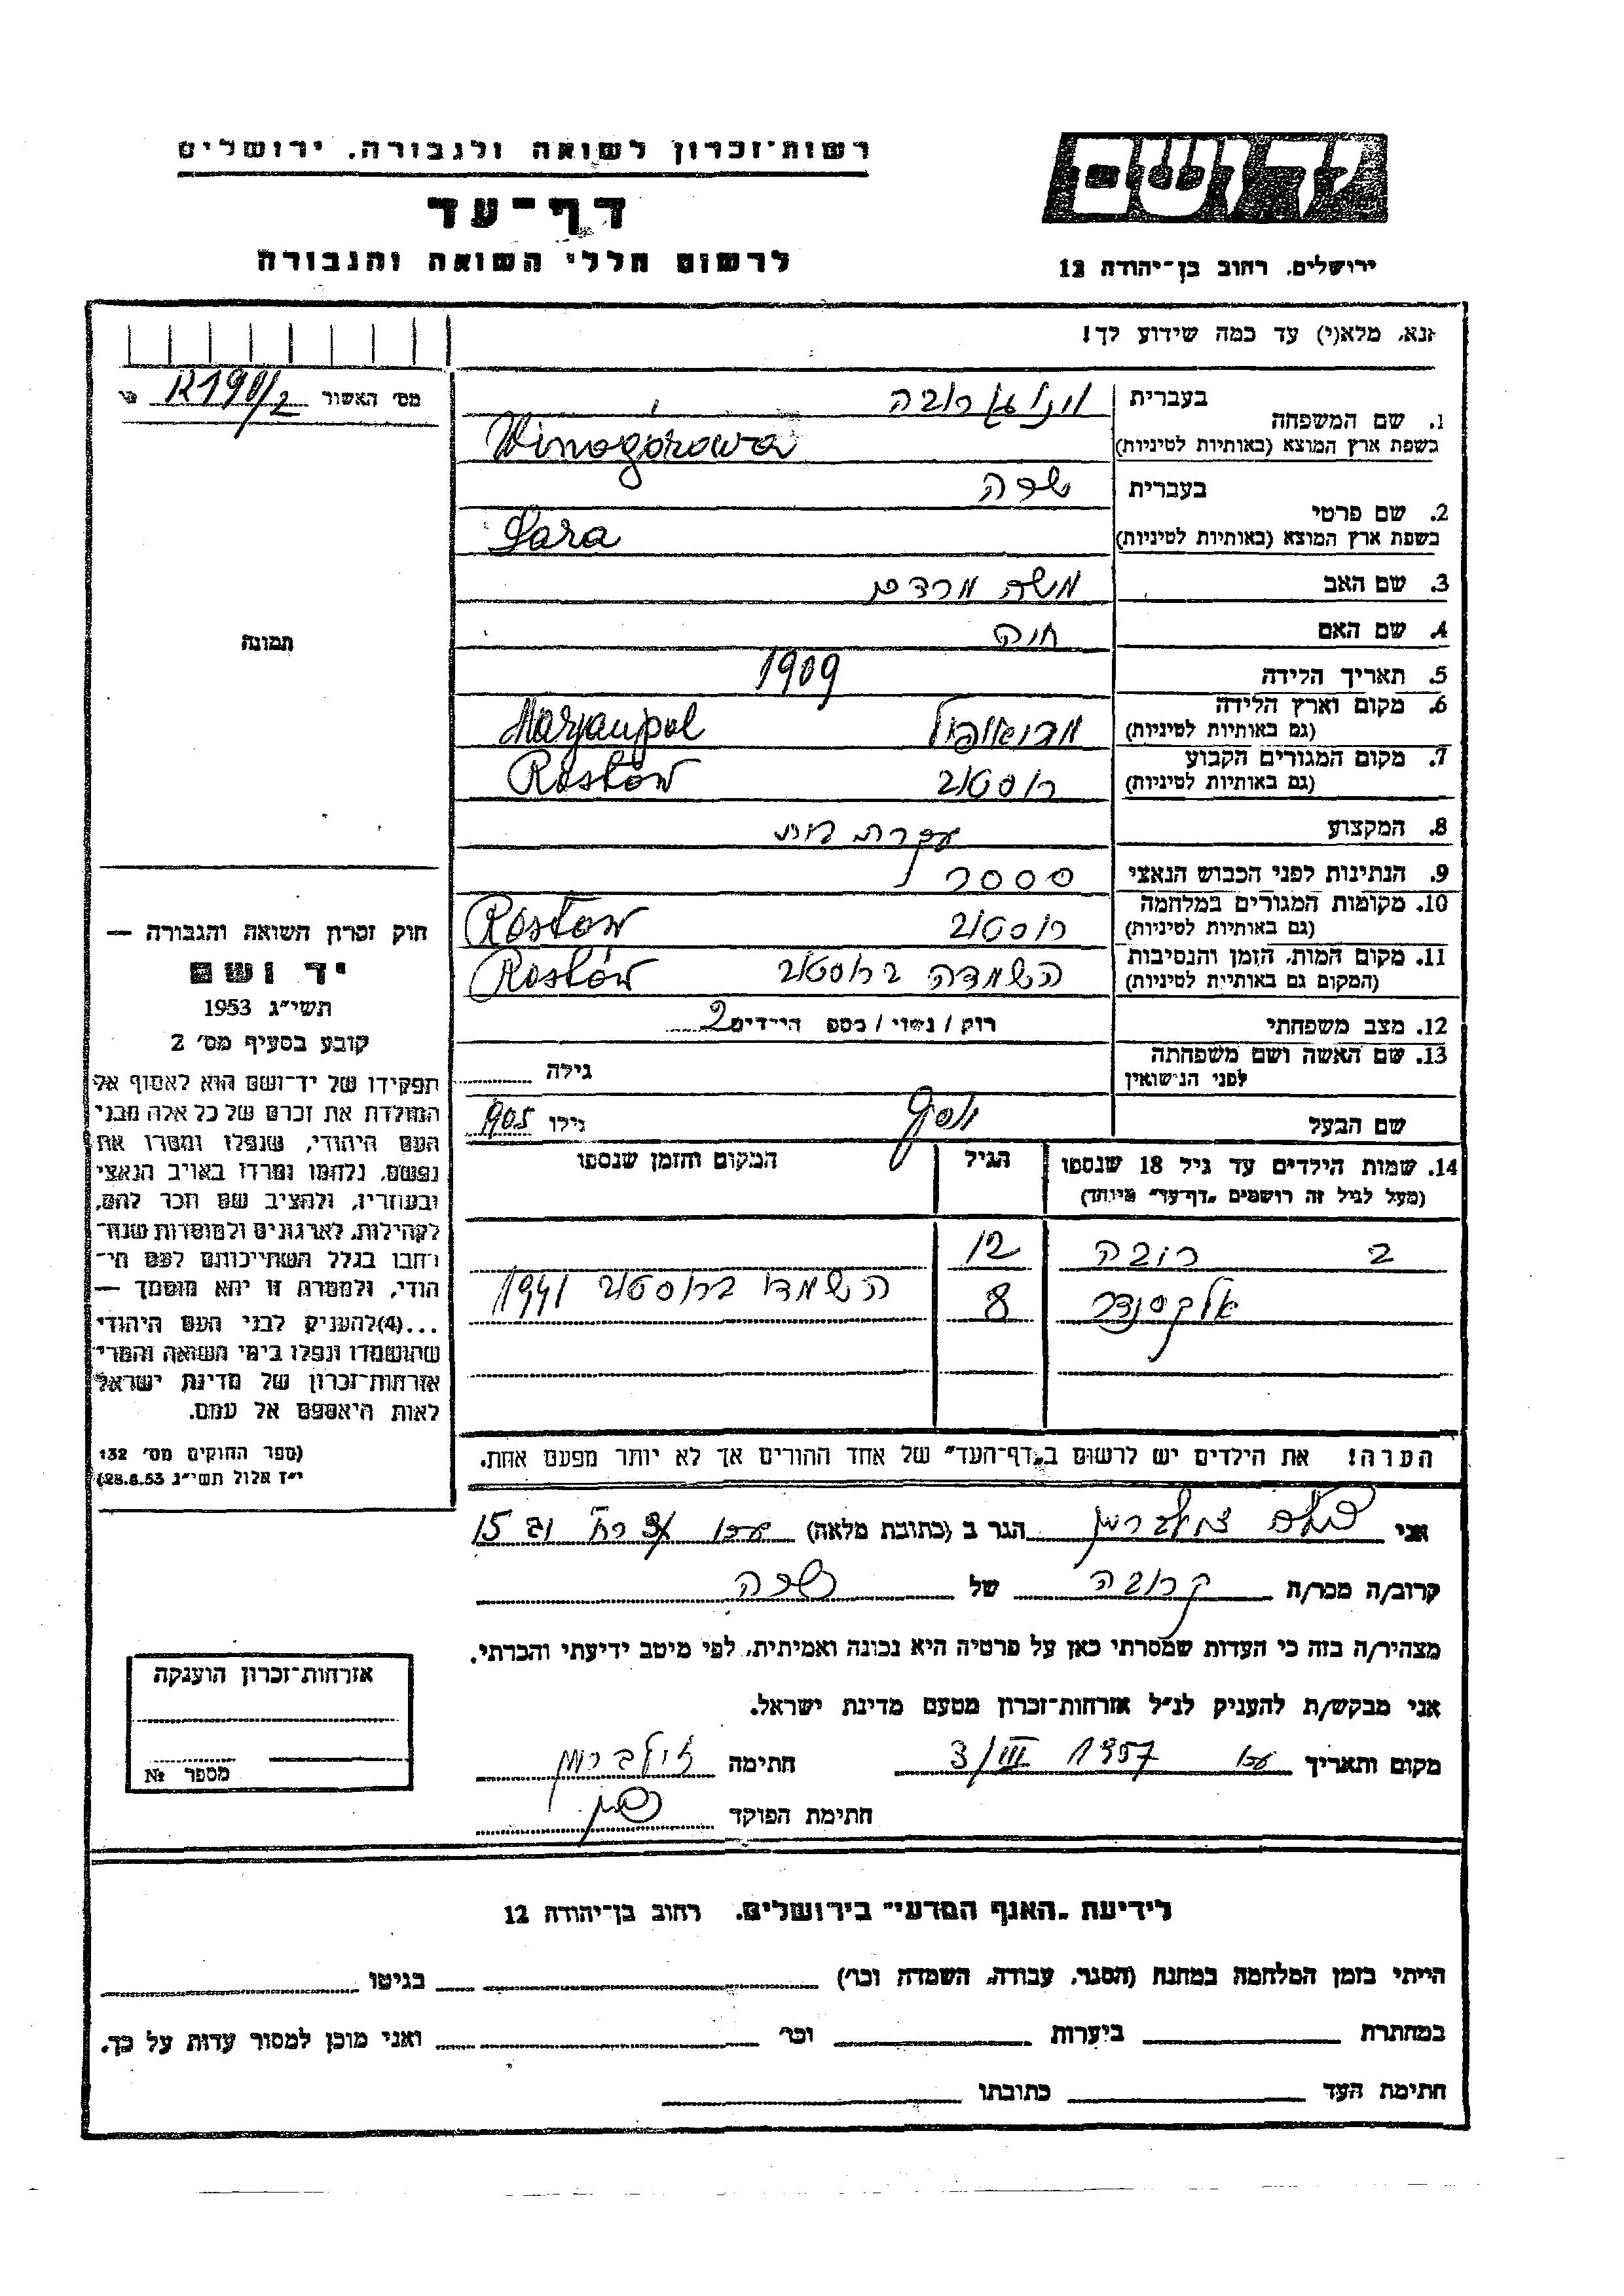 רשות־זכרון לשואה ולגבורה. ירושלים
דף־עד
לרשום חללי השואה והגבורה
יד ושם
ירושלים. רחוב בן־יהודה 12
נא, מלא(י) עד כמה שידוע לך!
מס׳ האשור R198/2
1. שם המשפחה
בעברית
בשפת ארץ המוצא (באותיות לטיניות) Winogórowa
2. שם פרטי
בעברית שרה
בשפת ארץ המוצא (באותיות לטיניות) Sara
3. שם האב משה מרדכי
4. שם האם חוה
תמונה
5. תאריך הלידה 1909
6. מקום וארץ הלידה
(גם באותיות לטיניות) מריאופול Marjaupol
7. מקום המגורים הקבוע
(גם באותיות לטיניות) רוסטוב Rostów
8. המקצוע עקרת בית
9. הנתינות לפני הכבוש הנאצי
10. מקומות המגורים במלחמה
(גם באותיות לטיניות) רוסטוב Rostow
11. מקום המות, הזמן והנסיבות
(המקום גם באותיות לטיניות) השמדה ברוסטוב Rostów
12. מצב משפחתי רוק / נשוי / מספר הילדים 2
13. שם האשה ושם משפחתה
לפני הנישואין גילה
שם הבעל יוסף גילו 1905
14. שמות הילדים עד גיל 18 שנספו
(מעל לגיל זה רושמים „דף־עד” מיוחד) הגיל המקום והזמן שנספו
2 רובה 12
אלכסנדר 8 השמדו ברוסטוב 1941
הערה! את הילדים יש לרשום ב„דף־העד” של אחד ההורים אך לא יותר מפעם אחת.
חוק זכרון השואה והגבורה —
יד ושם
תשי״ג 1953
קובע בסעיף מס׳ 2
תפקידו של יד־ושם הוא לאסוף אל
המולדת את זכרם של כל אלה מבני
העם היהודי, שנפלו ומסרו את
נפשם, נלחמו ומרדו באויב הנאצי
ובעוזריו, ולהציב שם וזכר להם,
לקהילות, לארגונים ולמוסדות שנח־
רבו בגלל השתייכותם לעם הי־
הודי, ולמטרה זו יהא מוסמך —
...(4)להעניק לבני העם היהודי
שהושמדו ונפלו בימי השואה והמרי
אזרחות־זכרון של מדינת ישראל
לאות היאספם אל עמם.
(ספר החוקים מס׳ 132
י״ז אלול תשי״ג 28.8.53)
אני הגר ב (כתובת מלאה) עכו 15
קרוב/ה מכר/ה קרובה של שרה
מצהיר/ה בזה כי העדות שמסרתי כאן על פרטיה היא נכונה ואמיתית, לפי מיטב ידיעתי והכרתי.
אני מבקש/ת להעניק לנ״ל אזרחות־זכרון מטעם מדינת ישראל.
מקום ותאריך עכו 3/III 1957 חתימה זילברמן
חתימת הפוקד
אזרחות־זכרון הוענקה
מספר №
לידיעת „האגף המדעי” בירושלים. רחוב בן־יהודה 12
הייתי בזמן המלחמה במחנה (הסגר, עבודה, השמדה וכו׳) בגיטו
במחתרת ביערות וכו׳ ואני מוכן למסור עדות על כך.
חתימת העד כתובתו